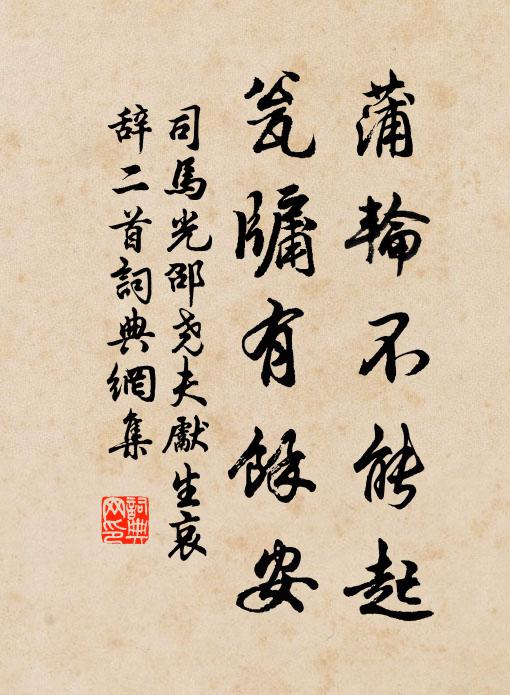 蒲輪不能起
瓮牖有餘安
司馬光邵尧夫獻生哀
辞二首詞典網集
詞典網印